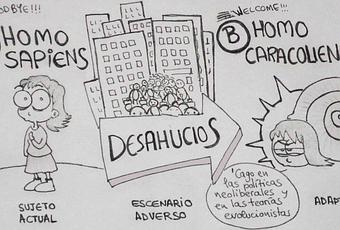 ODBYE!!!
HOMO
SAPIENS
WELCOME!!!
B HOMO
CARACOLIEN
DESAHUCIOS
'Cago en
las políticas
neoliberales y
en las teorías
evolucionistas
SUJETO
ACTUAL
ESCENARIO
ADVERSO
ADAP